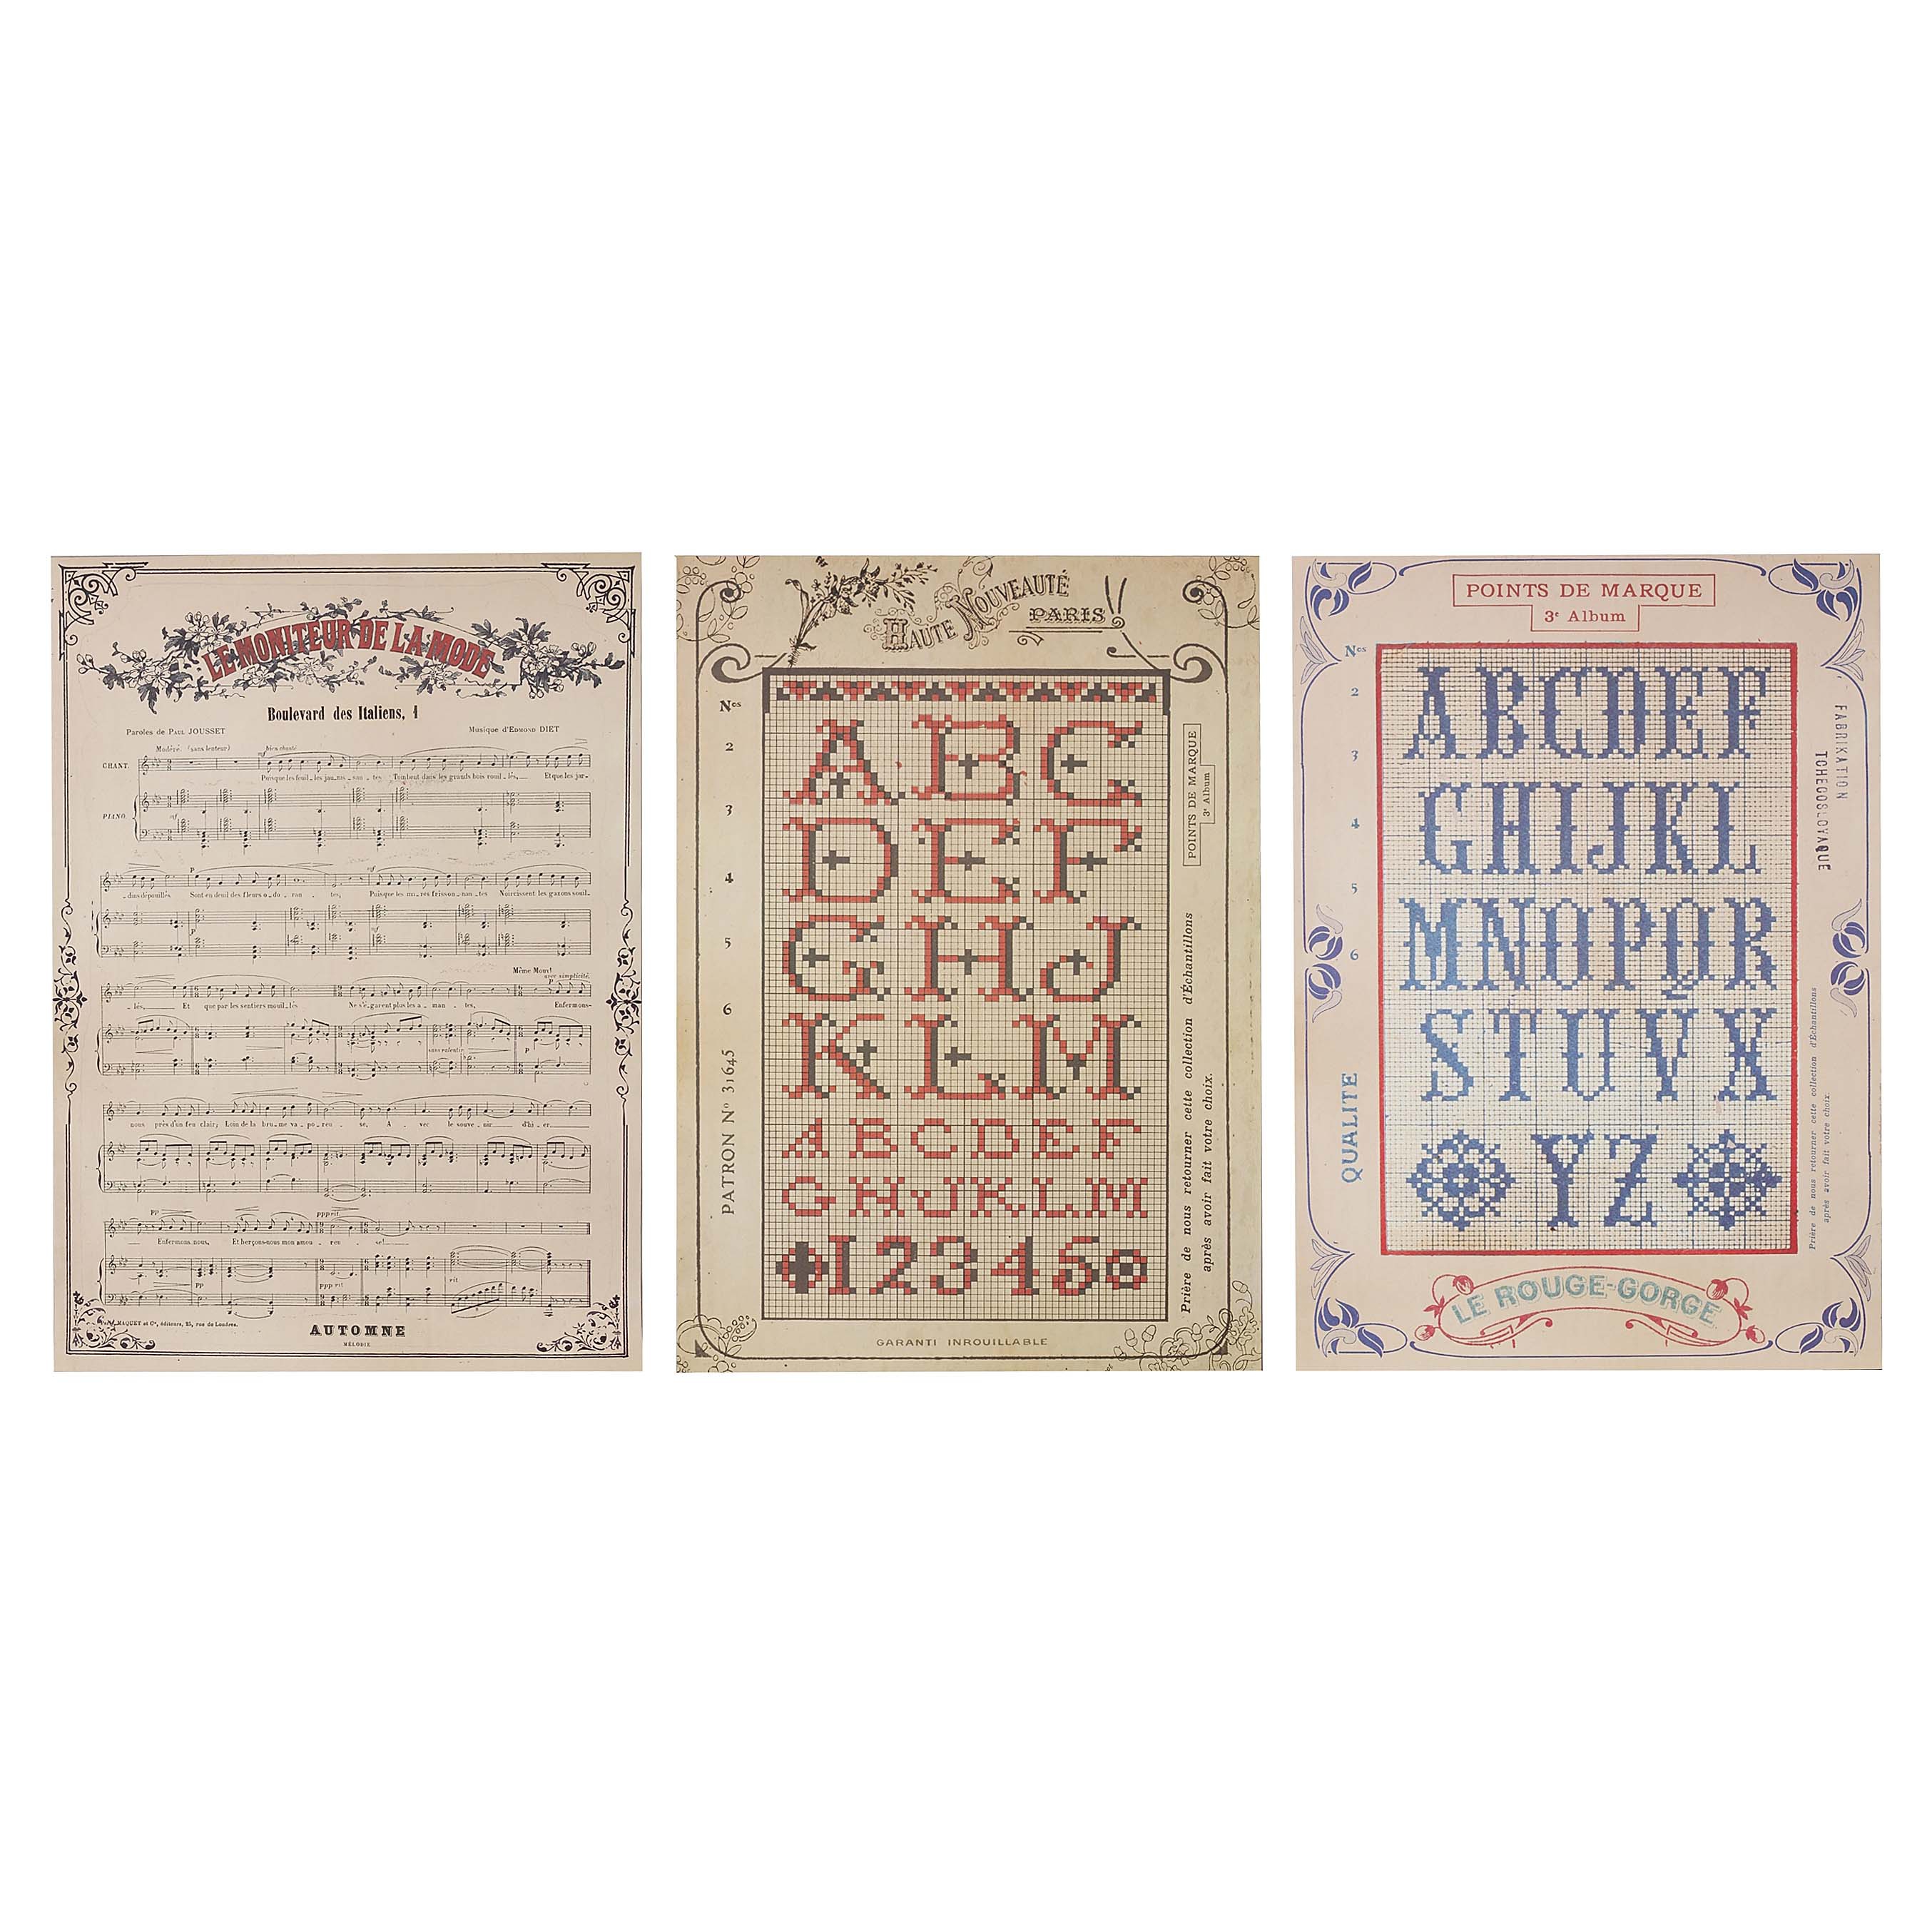 LE MONITEUR DE LA MODE
Boulevard des Italiens, 1
Paroles de PAUL JOUSSET
Musique d'EDMOND DIET
Modéré. (sans lenteur)
mf bien chanté
CHANT.
Puisque les feuil_les jau_nis_san_tes Tombent dans les grands bois rouil_lés,___ Et que les jar-
PIANO.
mf
p
mf
_dins dépouillés Sont en deuil des fleurs o_do_ran_tes, Puisque les ma_res frisson_nan_tes Noircissent les gazons souil-
p
mf
Même Mouvt
avec simplicité.
_lés,___ Et que par les sentiers mouil_lés Ne s'e_garent plus les a_man_tes, Enfermons-
sans ralentir
p
nous près d'un feu clair; Loin de la bru_me va_po_reu_se, A_vec le souve_nir___ d'hi_er___
pp
ppp rit.
Enfermons nous, Et berçons-nous mon amou_reu_se!___
pp
ppp rit.
rit
MAQUET et Cie, éditeurs, 25, rue de Londres.
AUTOMNE
MÉLODIE
HAUTE NOUVEAUTÉ
PARIS
Nos
2
3
4
5
6
PATRON No 31645
A B C
D E F
G H J
K L M
A B C D E F
G H J K L M
1 2 3 4 5
POINTS DE MARQUE
3e Album
Prière de nous retourner cette collection d'Échantillons
après avoir fait votre choix.
GARANTI INROUILLABLE
POINTS DE MARQUE
3e Album
Nos
2
3
4
5
6
QUALITE
ABCDEF
GHIJKL
MNOPQR
STUVX
YZ
FABRIKATION
TCHECOSLOVAQUE
Prière de nous retourner cette collection d'Échantillons
après avoir fait votre choix.
LE ROUGE-GORGE